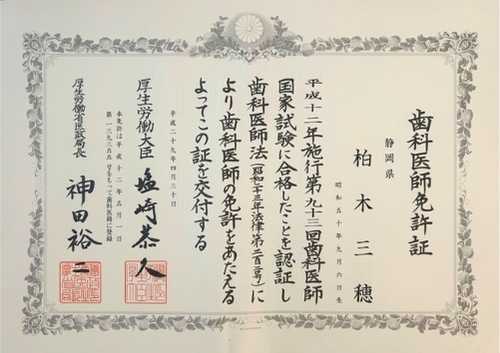 歯科医師免許証
静岡県
柏木三穂
昭和五十年九月六日生
平成十二年施行第九十三回歯科医師
国家試験に合格したことを認証し
歯科医師法(昭和二十三年法律第二百二号)に
より歯科医師の免許をあたえる
よってこの証を交付する
平成二十九年四月三十日
厚生労働大臣 塩崎恭久
本免許は平成十二年五月一日
をもって歯科医籍に登録
厚生労働省医政局長 神田裕二